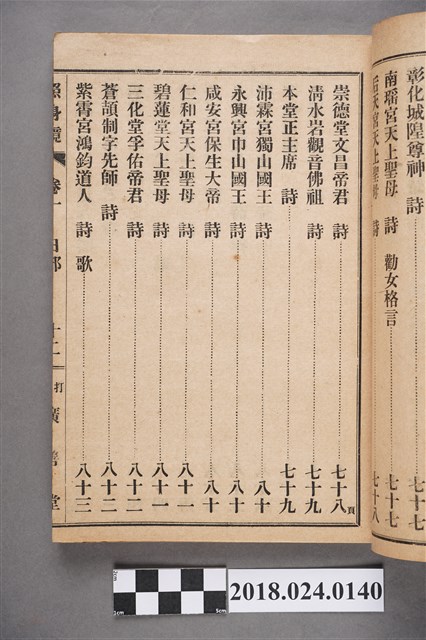 彰化城隍尊神 詩 七十七
南瑶宮天上聖母 詩 勸女格言 七十七
天上聖母 詩 七十八
崇德堂文昌帝君 詩 七十八頁
清水岩觀音佛祖 詩 七十九
本堂正主席 詩 七十九
沛霖宮獨山國王 詩 八十
永興宮巾山國王 詩 八十
咸安宮保生大帝 詩 八十
仁和宮天上聖母 詩 八十一
碧蓮堂天上聖母 詩 八十一
三化堂孚佑帝君 詩 八十二
蒼頡制字先師 詩 八十二
紫霄宮鴻鈞道人 詩 歌 八十三
照身鏡 卷一 十二 打 廣善堂
2cm
5cm
2018.024.0140